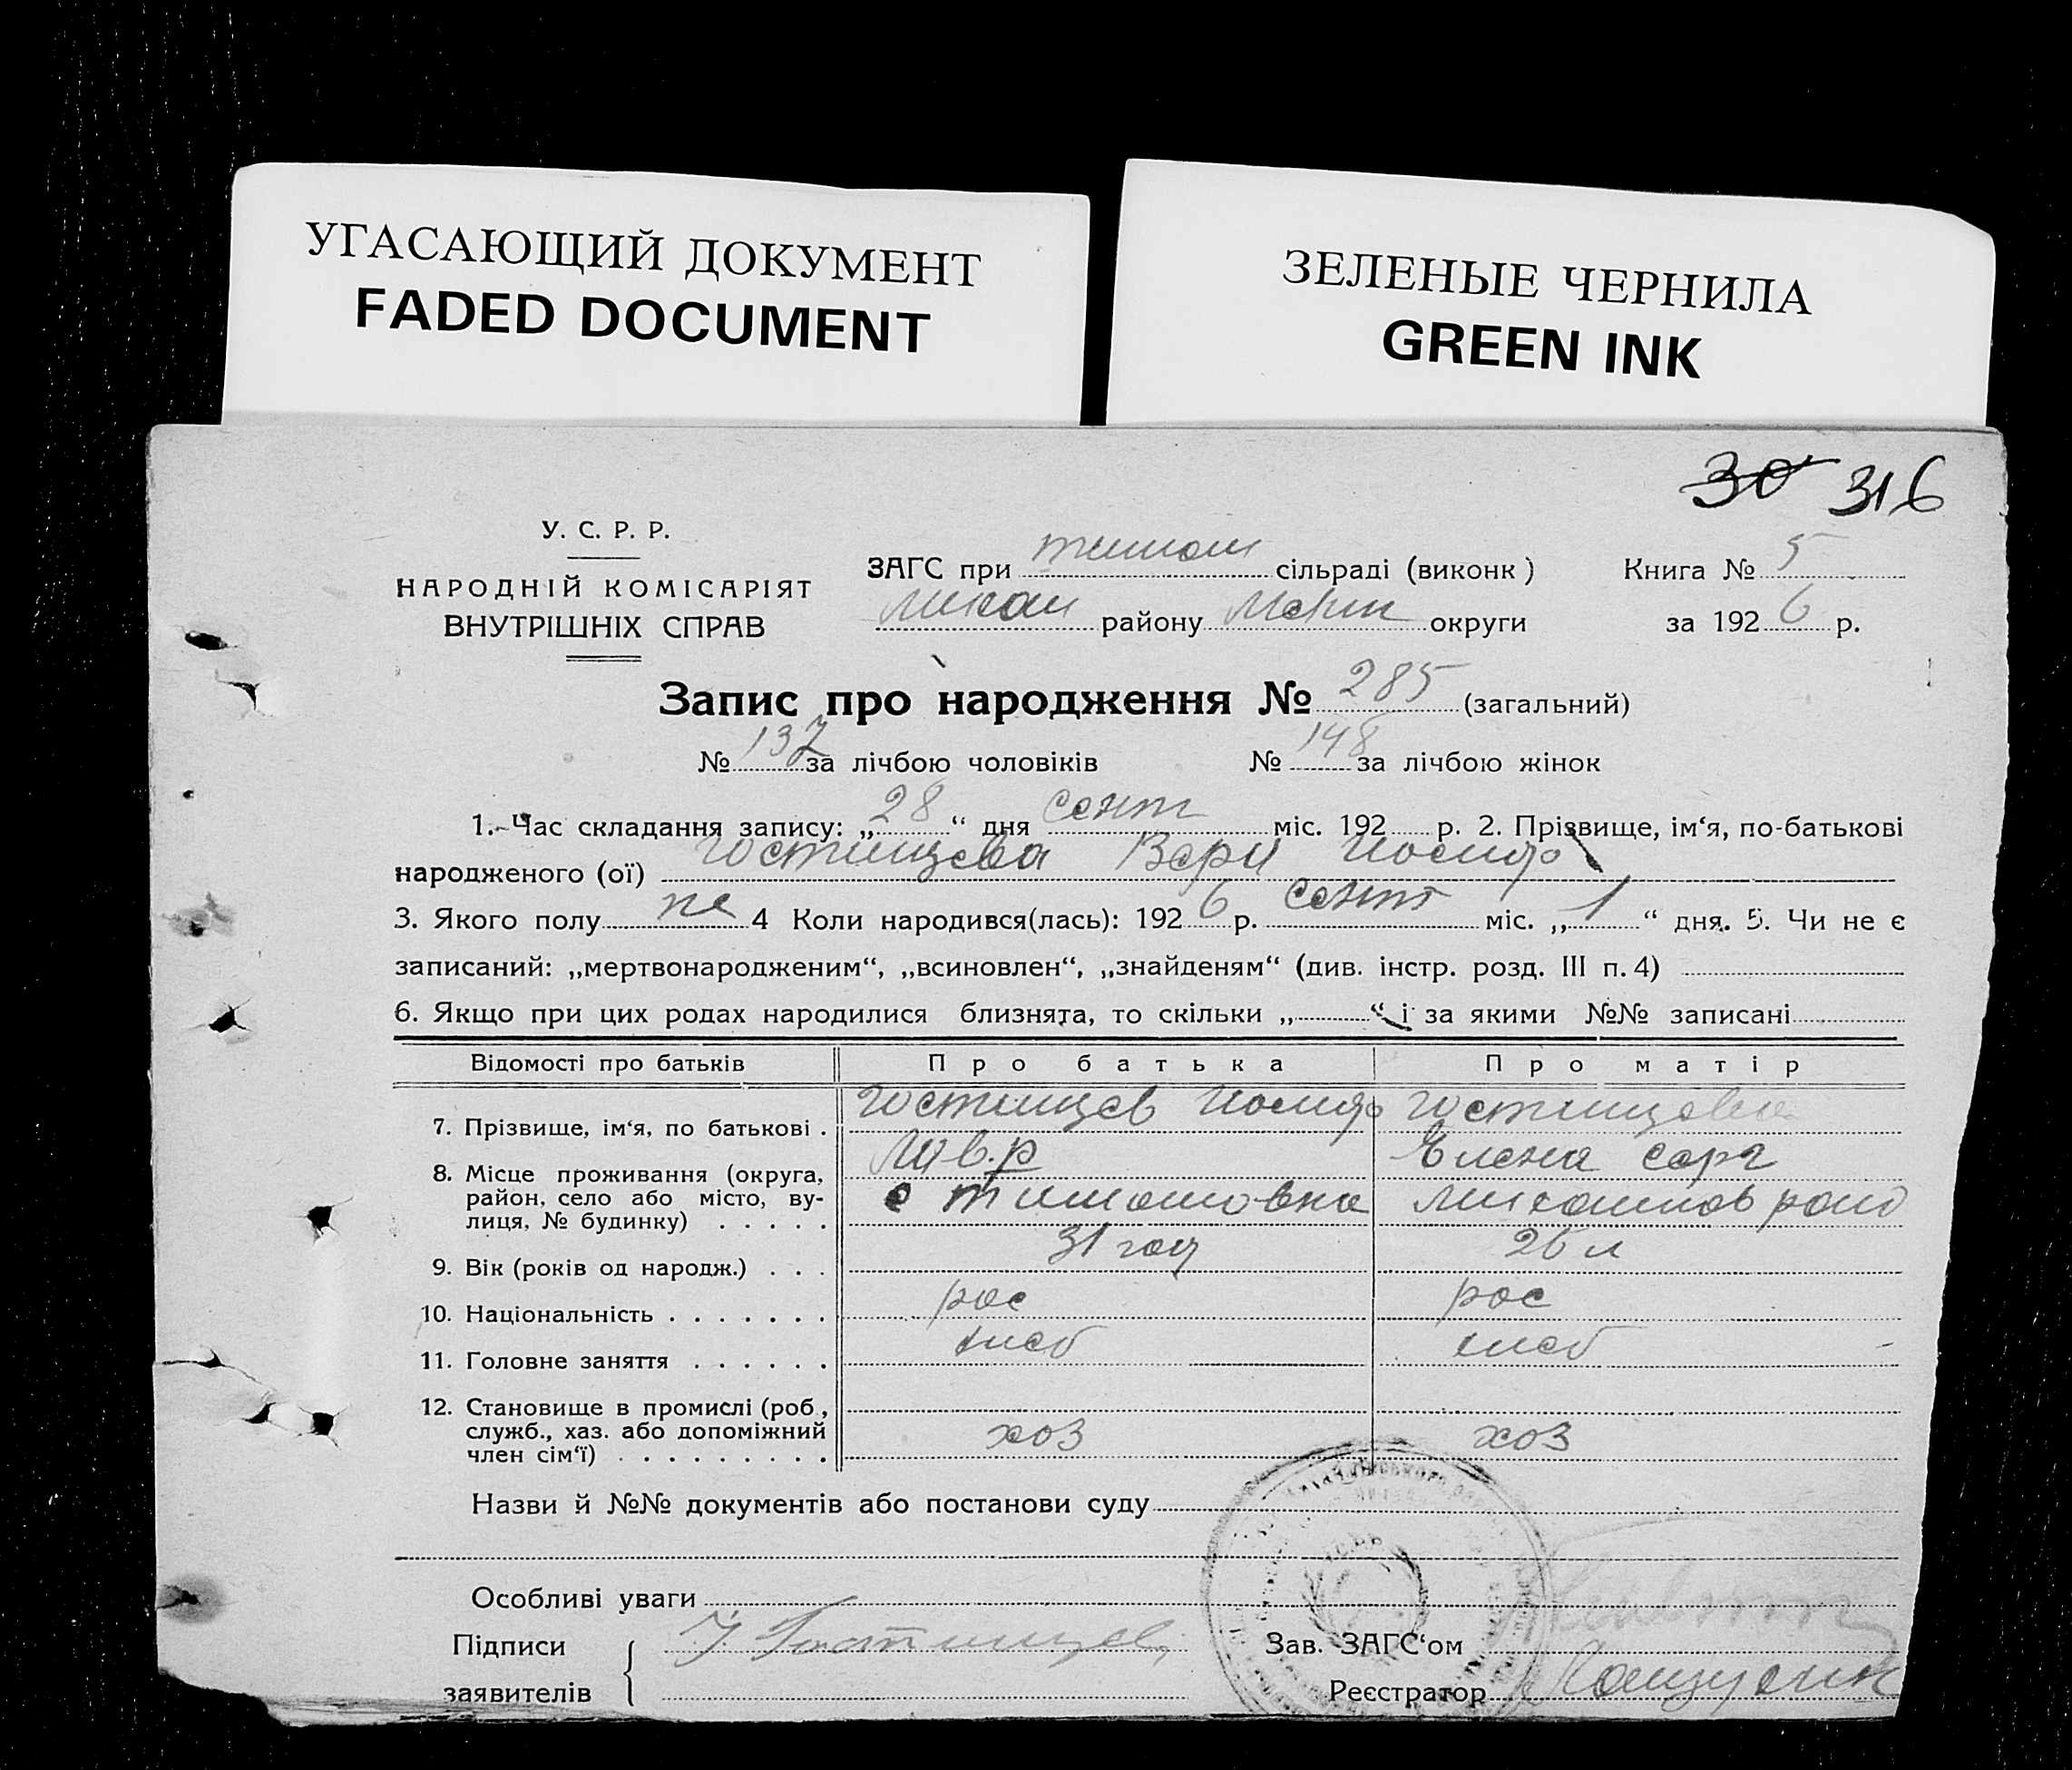 УГАСАЮЩИЙ ДОКУМЕНТ
FADED DOCUMENT
ЗЕЛЕНЫЕ ЧЕРНИЛА
GREEN INK
30 316
У. С. Р. Р.
НАРОДНІЙ КОМІСАРІЯТ
ВНУТРІШНІХ СПРАВ
ЗАГС при тимош сільраді (виконк)
района району Меліт округи
Книга № 5
за 192 6 р.
Запис про народження № 285 (загальний)
№ 137 за лічбою чоловіків № 148 за лічбою жінок
1. Час складання запису: „ 28 “ дня сент міс. 192 р. 2. Прізвище, ім‘я, по-батькові
народженого (ої) Гостищева Вера
3. Якого полу же 4 Коли народився(лась): 192 6 р. сент міс. „ 1 “ дня. 5. Чи не є
записаний: „мертвонародженим“, „всиновлен“, „знайденям“ (див. інстр. розд. III п. 4)
6. Якщо при цих родах народилися близнята, то скільки „ “ і за якими №№ записані
Відомості про батьків Про батька Про матір
7. Прізвище, ім‘я, по батькові . Гостищев Гостищева
Елена серг
8. Місце проживання (округа,
район, село або місто, ву-
лиця, № будинку) . . . . . с тимошовка
9. Вік (років од народж.) . . . 31 год 26 л
10. Національність . . . . . . . рос рос
11. Головне заняття . . . . . . хлеб хлеб
12. Становище в промислі (роб,
служб., хаз. або допоміжний
член сім‘ї) . . . . . . . . . хоз хоз
Назви й №№ документів або постанови суду
Особливі уваги
Підписи
заявителів
Зав. ЗАГС‘ом
Реєстратор